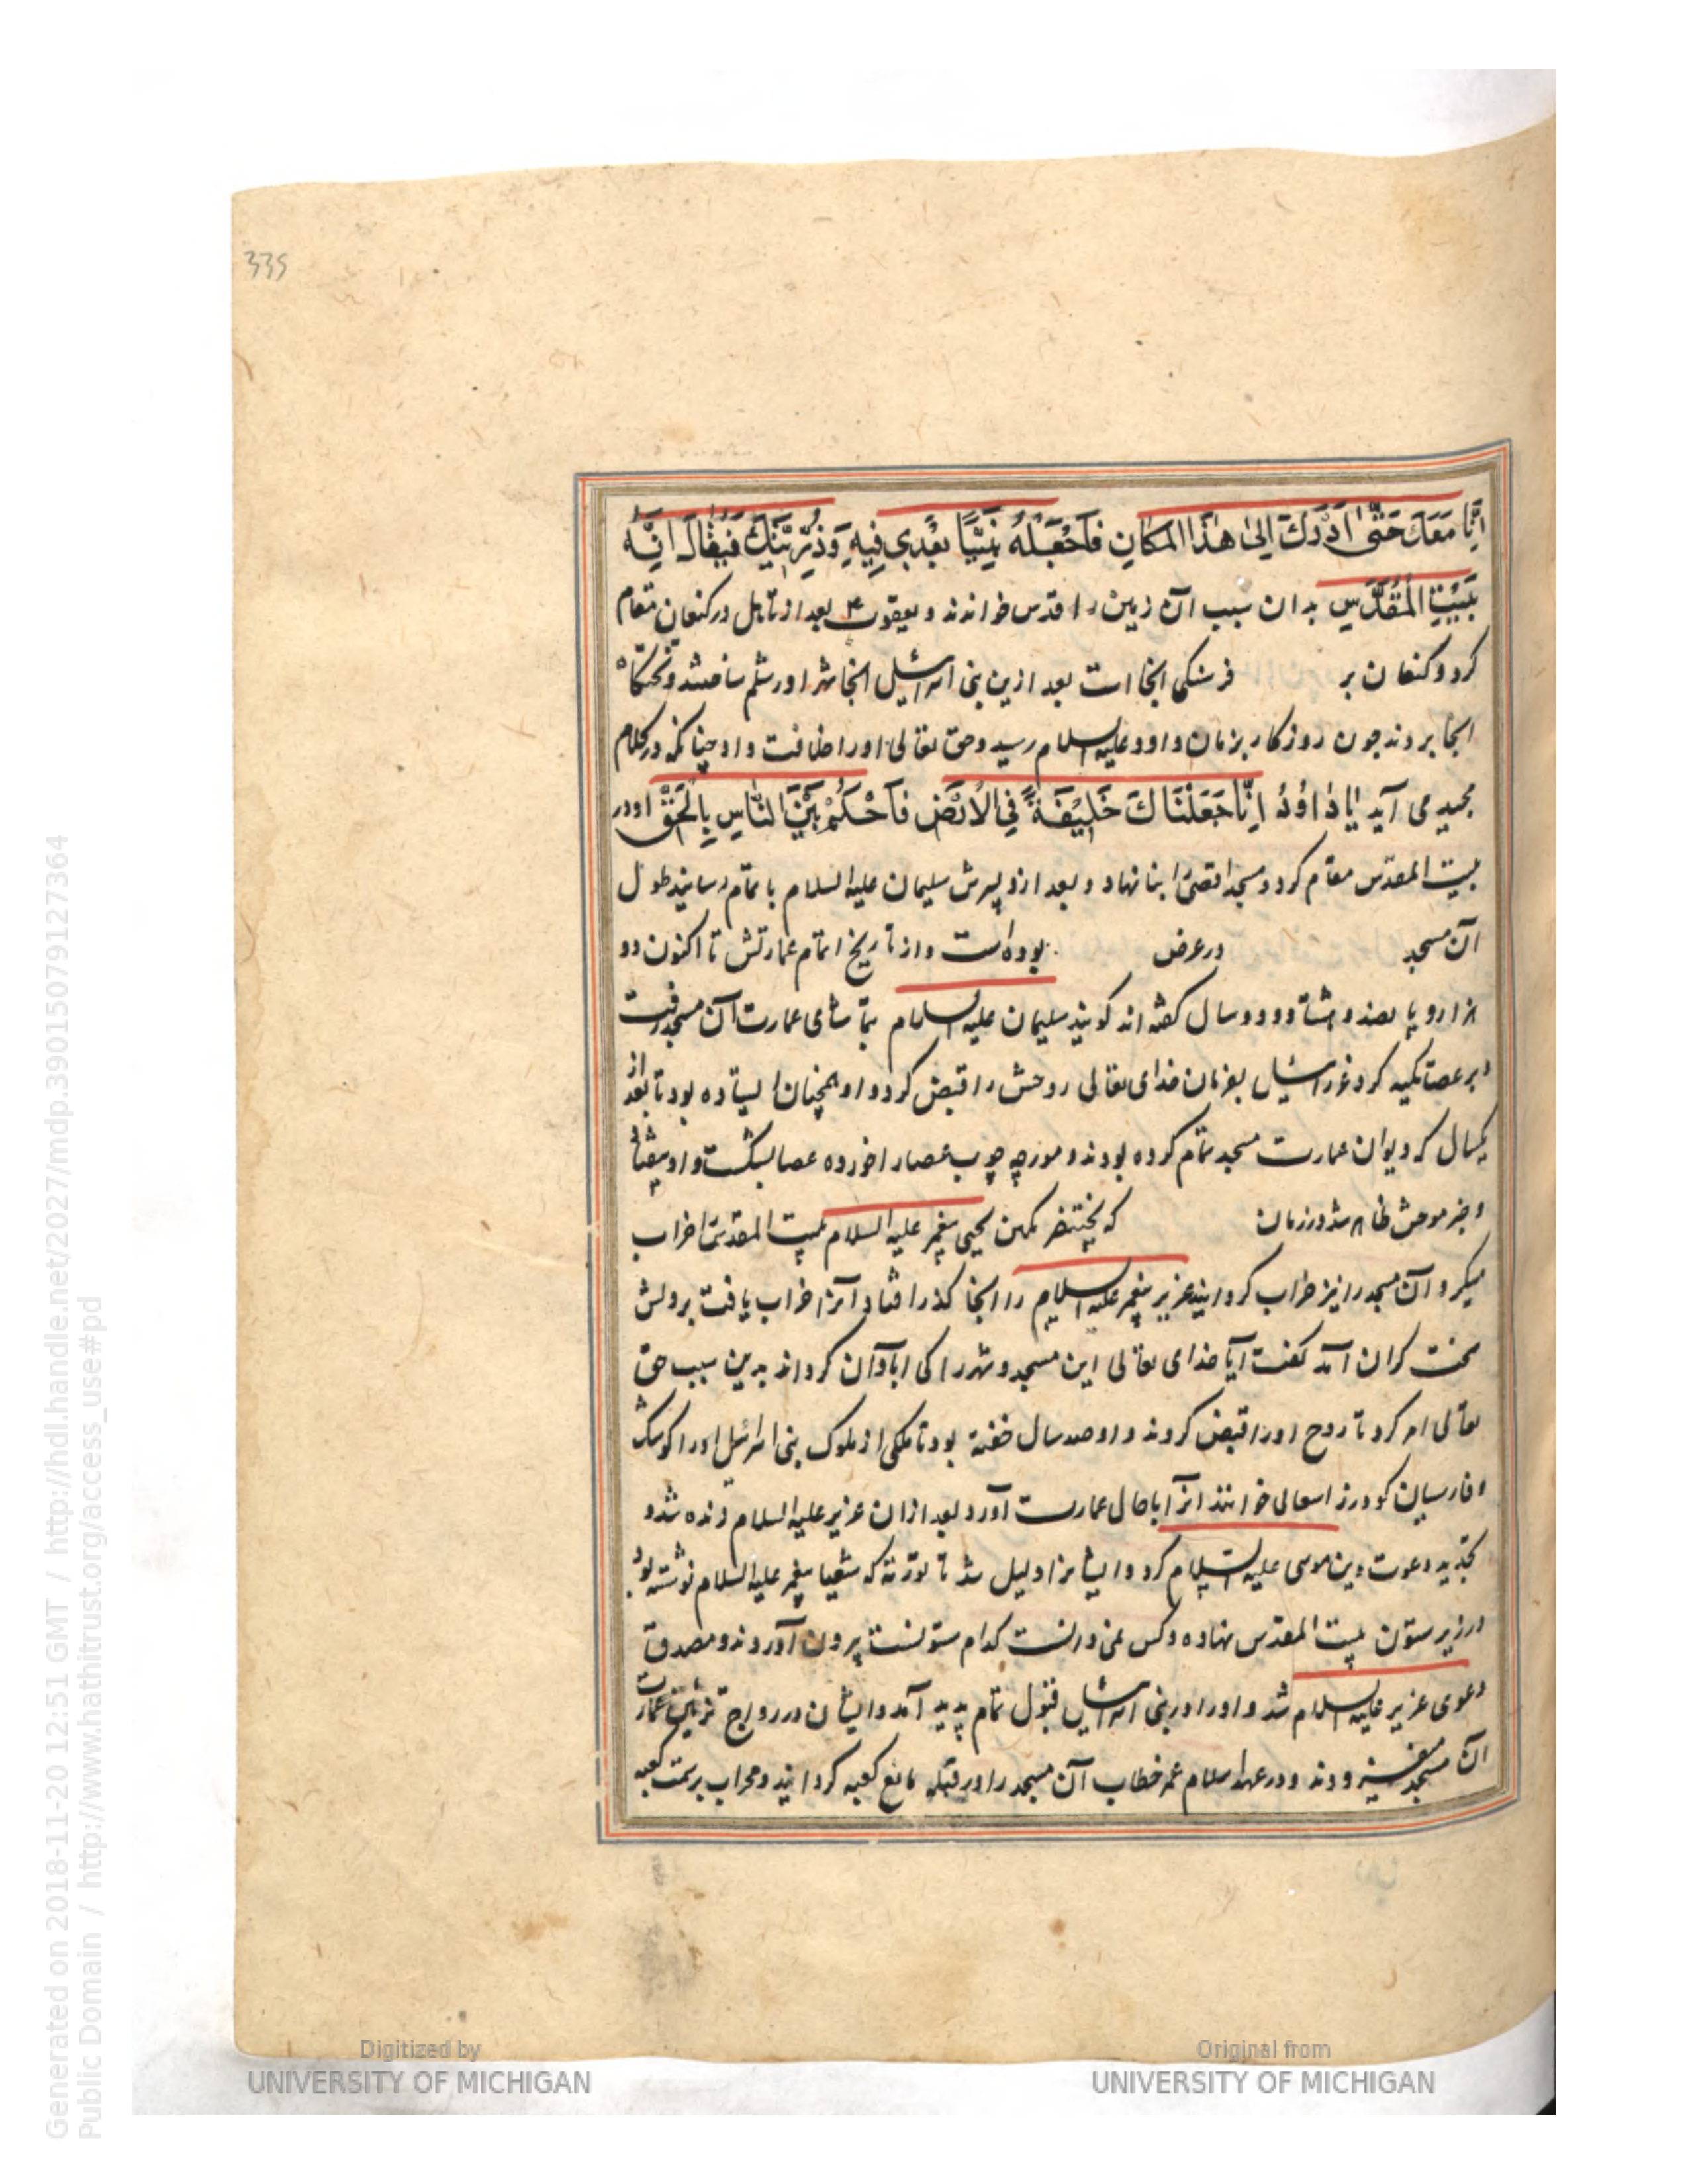 335
اِنَّا مَعَكَ حَتّٰى اَدْرَكَ اِلىٰ هٰذَا المَكَانِ فَاَجْعَلْهُ بَيْتًا بَعْدِى فِيْهِ وَذُرِّيَّتِكَ فَيُقَالُ اِنَّهُ
بَيْتِ المُقَدَّسِ بدان سبب آن زمین را قدس خواندند و یعقوب ع بعد از تاهل در کنعان مقام
کرد و کنعان بر فرسنکی انجا است بعد ازین بنی اسرائیل انجا شهر اورشلم ساختند و تختکاه
انجا بردند جون روزکار بزمان داود علیه السلام رسید و حق تعالی او را خلافت داد چنانکه در کلام
مجید می آید یَا دَاوُدُ اِنَّا جَعَلْنَاكَ خَلِيْفَةً فِي الْاَرْضِ فَاحْكُمْ بَيْنَ النَّاسِ بِالْحَقِّ او در
بیت المقدس مقام کرد و مسجد اقصی را بنا نهاد و بعد ازو پسرش سلیمان علیه السلام باتمام رسانید طول
آن مسجد در عرض بوده است و از تاریخ اتمام عمارتش تا اکنون دو
هزار و پانصد و هشتاد و دو سال کفته اند کویند سلیمان علیه السلام بتماشای عمارت آن مسجد رفت
و بر عصا تکیه کرد عزرائیل بفرمان خدای تعالی روحش را قبض کرد و او همچنان ایستاده بود تا بعد از
یکسال که دیوان عمارت مسجد تمام کرده بودند و مورچه چوب عصا را خورده عصا بشکست و او بیفتاد
و خبر موحش ظاهر شد در زمان که بختنصر بکین یحیی پیغمبر علیه السلام بیت المقدس خراب
میکرد آن مسجد را نیز خراب کردانید عزیر پیغمبر علیه السلام را انجا کذر افتاد و آنرا خراب یافت بر دلش
سخت کران آمد کفت آیا خدای تعالی این مسجد و شهر را کی ابادان کرداند بدین سبب حق
تعالی امر کرد تا روح او را قبض کردند و او صد سال خفته بود تا ملکی از ملوک بنی اسرائیل او را کوشک
و فارسیان کودرز اسعالی خوانند انرا باحال عمارت آورد بعد ازان عزیر علیه السلام زنده شد و
تجدید دعوت دین موسی علیه السلام کرد و ایشانرا دلیل شد تا توریة که شعیا پیغمبر علیه السلام نوشته بود
در زیر ستون بیت المقدس نهاده و کس نمی دانست کدام ستونست بیرون آوردند و مصدق
دعوی عزیر علیه السلام شد و او را در بنی اسرائیل قبول تمام پدید آمد و ایشان در رواج تزئین عمارت
آن مسجد میفزودند و در عهد اسلام عمر خطاب آن مسجد را در قبله مانع کعبه کردانید و محراب بر سمت کعبه
Digitized by
UNIVERSITY OF MICHIGAN
Original from
UNIVERSITY OF MICHIGAN
Generated on 2018-11-20 12:51 GMT / http://hdl.handle.net/2027/mdp.39015079127364
Public Domain / http://www.hathitrust.org/access_use#pd